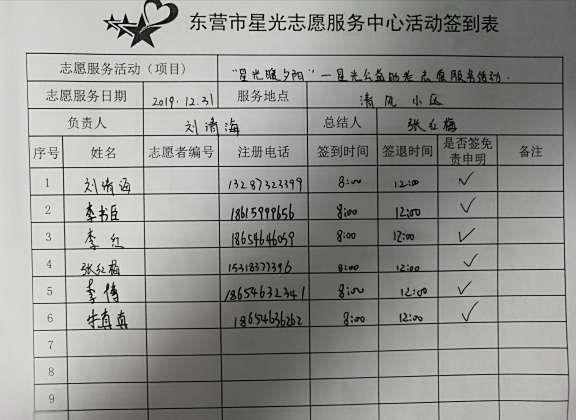 东营市星光志愿服务中心活动签到表
志愿服务活动（项目） "星光暖夕阳"—星光公益助老志愿服务活动.
志愿服务日期 2019.12.31 服务地点 清风小区
负责人 刘清海 总结人 张红梅
序号 姓名 志愿者编号 注册电话 签到时间 签退时间 是否签免责申明 备注
1 刘清海 13287323399 8:00 12:00 ✓
2 李书臣 18615999656 8:00 12:00 ✓
3 李红 18654646059 8:00 12:00 ✓
4 张红梅 15318377396 8:00 12:00 ✓
5 李倩 18654632341 8:00 12:00 ✓
6 牛真真 18654636262 8:00 12:00 ✓
7
8
9